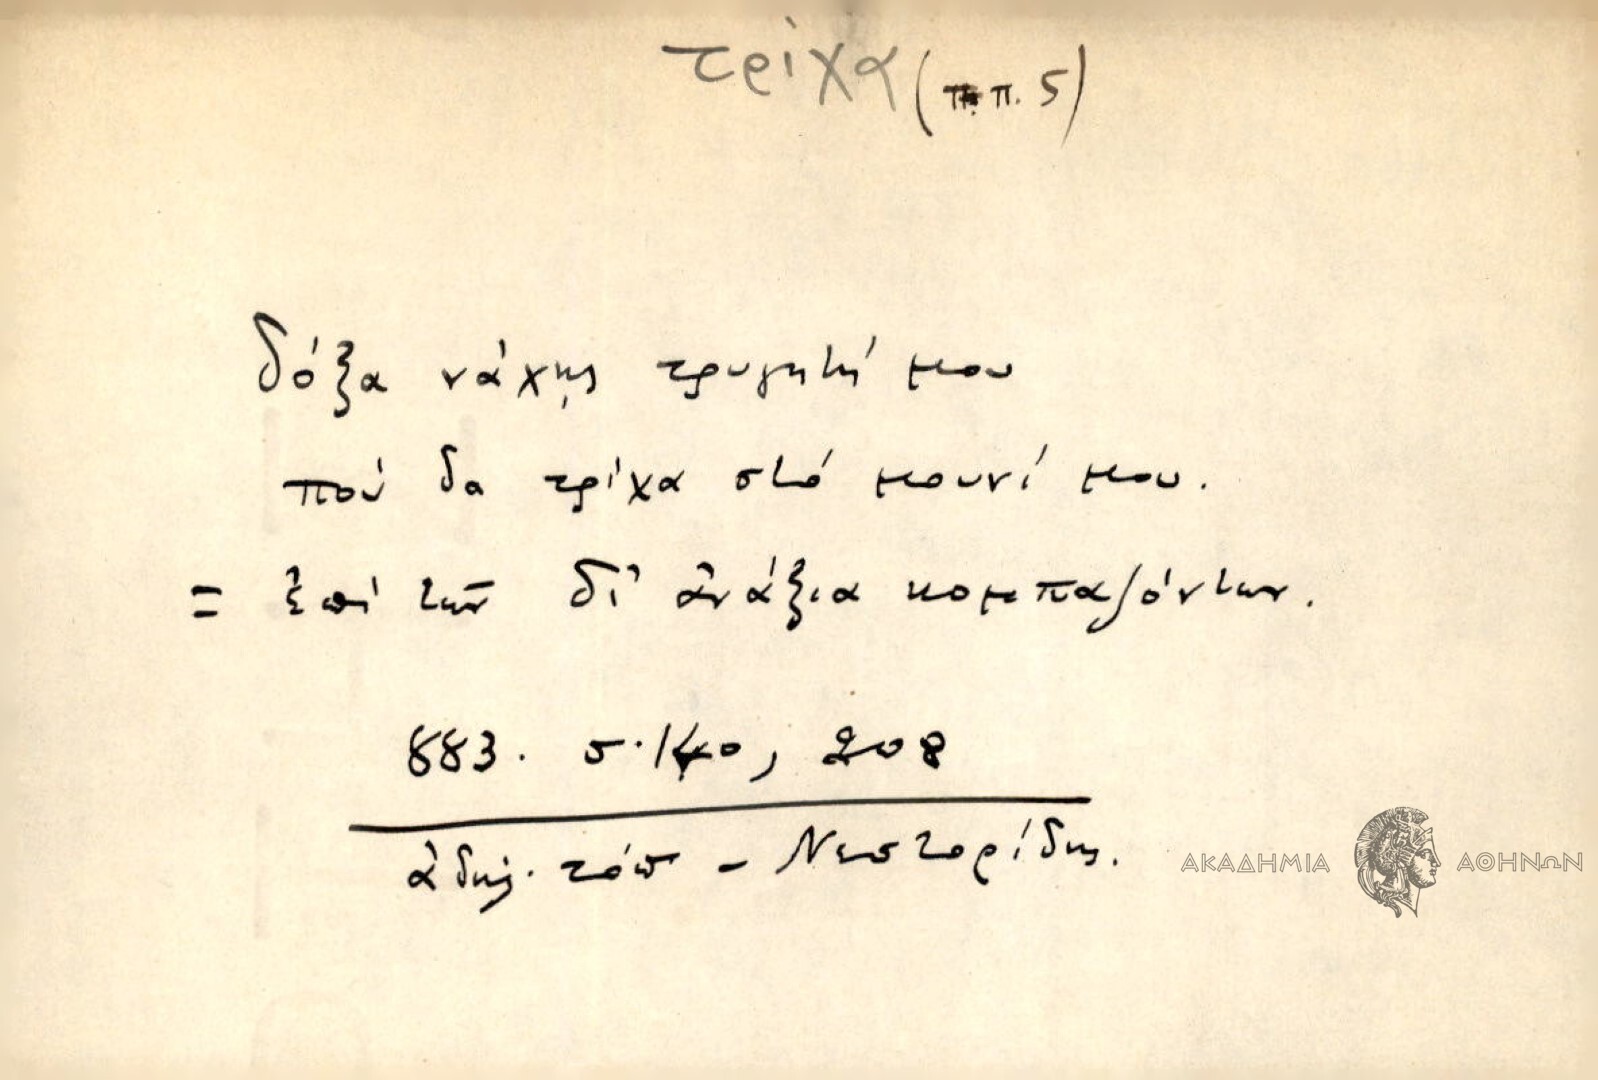 τρίχα (π. 5)
δόξα νάχῃς τρυγητή μου
πού δα τρίχα στό μουνί μου.
= ἐπί τῶν δι' ἀνάξια κομπαζόντων.
883. σ. 140, 208
ἀδήλ. τόπ - Νεστορίδης.
ΑΚΑΔΗΜΙΑ ΑΘΗΝΩΝ